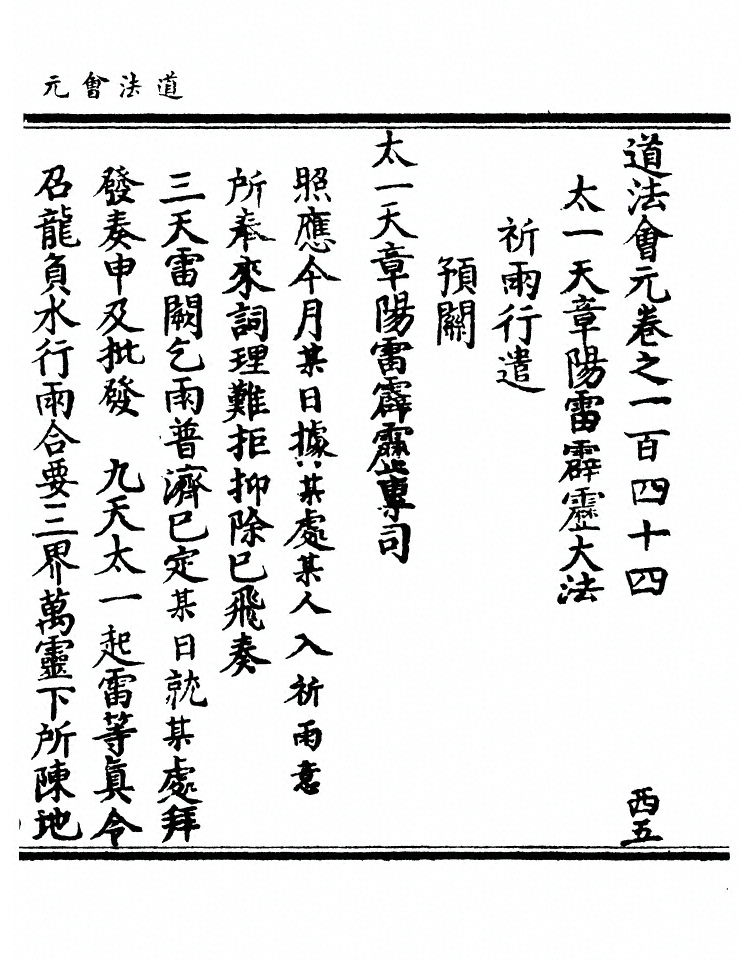 道法會元
道法會元卷之一百四十四 西五
太一天章陽雷霹靂大法
祈雨行遣
預關
太一天章陽雷霹靂專司
照應今月某日據某處某人入祈雨意
所奉來詞理難拒抑除已飛奏
三天雷闕乞雨普濟已定某日就某處拜
發奏申及批發 九天太一起雷等眞令
召龍負水行雨合要三界萬靈下所陳地